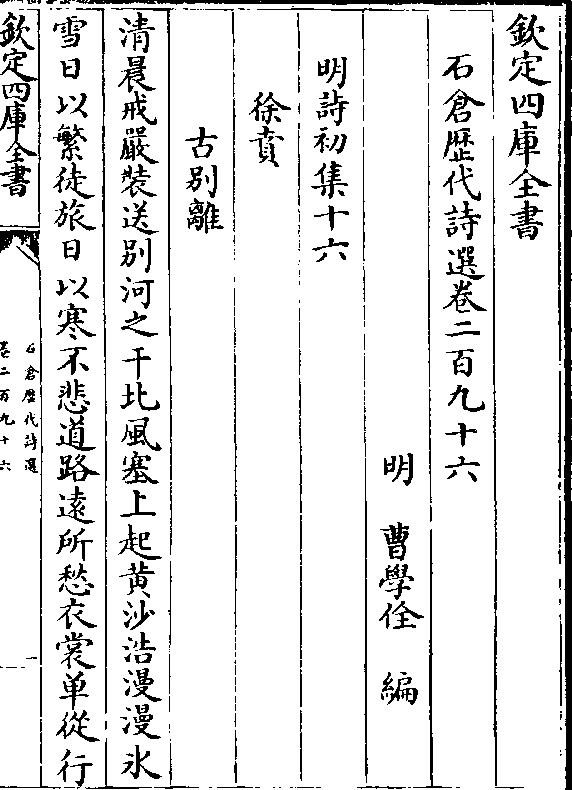 欽定四庫全書
石倉歴代詩選卷二百九十六
明　曹學佺　編
明詩初集十六
徐賁
古别離
清晨戒嚴裝送别河之干北風塞上起黄沙浩漫漫氷
雪日以繁徒旅日以寒不悲道路逺所愁衣裳单從行
欽定四庫全書
石倉歴代詩選
卷二百九十六
一